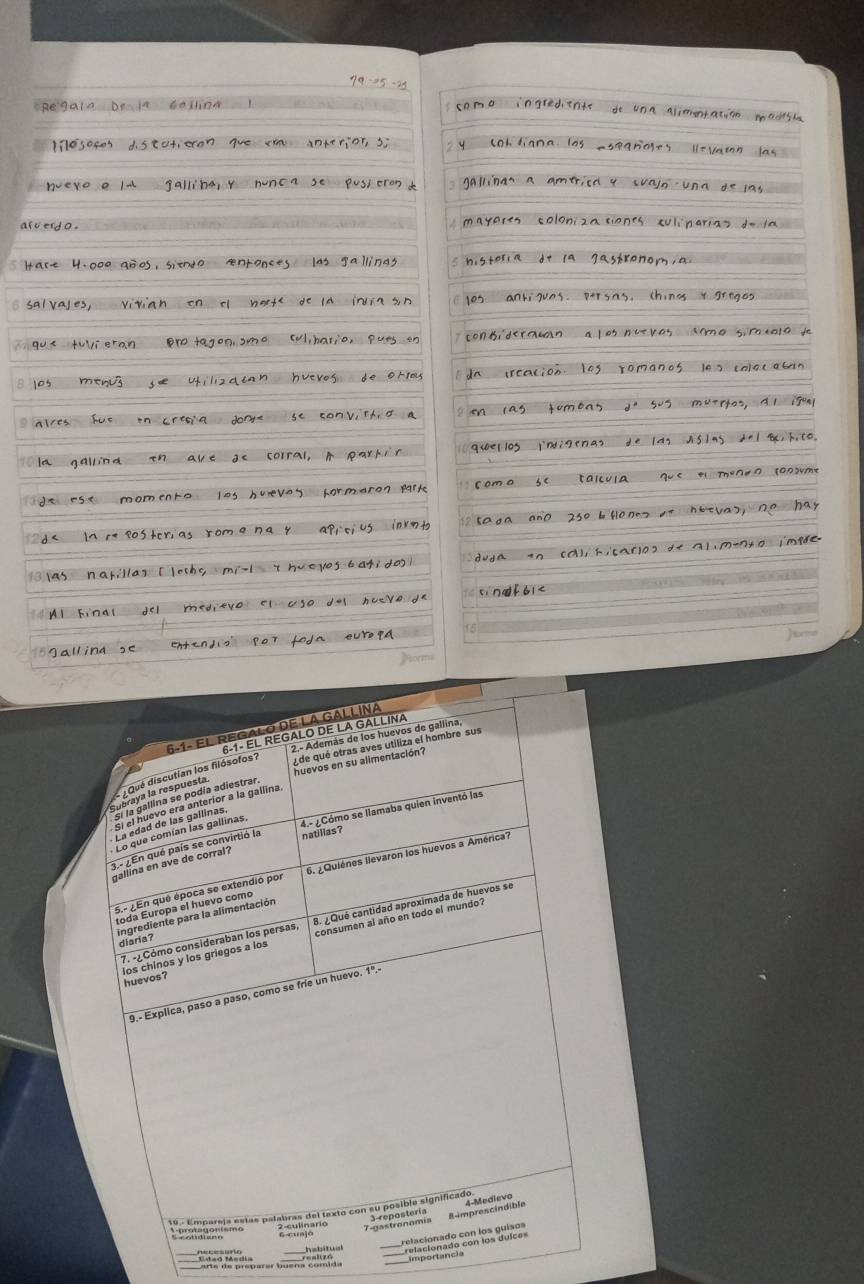 29-05-29
Regalo De la Gallina 1
filósofos discutieron que era anterior, si
huevo o la gallina, y nunca se pusieron de
acuerdo.
Hace 4.000 años, siendo entonces las gallinas
salvajes, vivian en el norte de la india sin
que tuvieran protagonismo culinario, pues en
los menús se utilizaban huevos de otras
aves fue en grecia donde se convirtió a
la gallina en ave de corral, A partir
de ese momento los huevos formaron parte
de la reposterias romana y apicius invento
las natillas (leche, miel y huevos batidos)
Al Final del medievo el uso del huevo de
gallina se extendió por toda europa
como ingrediente de una alimentación modesta
y cotidiana. los españoles llevaron las
gallinas a america y cuajo una de las
mayores colonizaciones culinarias de la
historia de la gastronomia.
los antiguos. persas, chinos y griegos
consideraban a los huevos como simbolo de
da creacion. los romanos los colocaban
en las tumbas de sus muertos, al igual
aquellos indigenas de las islas del pacifico.
como se calcula que el mundo consume
cada año 250 billones de huevas, no hay
duda en calificarlos de alimento impre-
cindible
6-1- EL REGALO DE LA GALLINA
6-1- EL REGALO DE LA GALLINA
- ¿Qué discutían los filósofos?
Subraya la respuesta.
· Si la gallina se podía adiestrar.
· Si el huevo era anterior a la gallina.
· La edad de las gallinas.
· Lo que comían las gallinas.
2.- Además de los huevos de gallina,
¿de qué otras aves utiliza el hombre sus
huevos en su alimentación?
3.- ¿En qué país se convirtió la
gallina en ave de corral?
4.- ¿Cómo se llamaba quien inventó las
natillas?
5.- ¿En qué época se extendió por
toda Europa el huevo como
ingrediente para la alimentación
diaria?
6. ¿Quiénes llevaron los huevos a América?
7. -¿Cómo consideraban los persas,
los chinos y los griegos a los
huevos?
8. ¿Qué cantidad aproximada de huevos se
consumen al año en todo el mundo?
9.- Explica, paso a paso, como se fríe un huevo. 1º.-
10.- Empareja estas palabras del texto con su posible significado.
1-protagonismo 2-culinario 3-repostería 4-Medievo
5-cotidiano 6-cuajó 7-gastronomía 8-imprescindible
____necesario ____habitual ____relacionado con los guisos
____Edad Media ____realizó ____relacionado con los dulces
____arte de preparar buena comida ____importancia